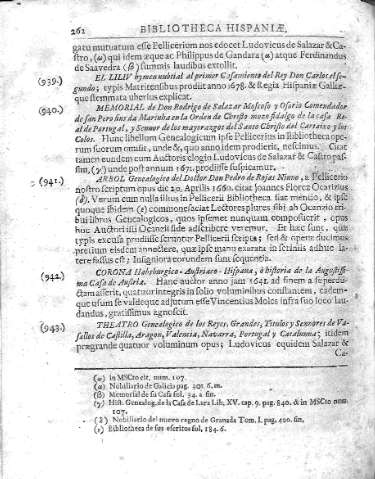 262 BIBLIOTHECA HISPANIÆ,
gatu mutuatum esse Pellicerium nos edocet Ludovicus de Salazar & Ca-
stro, (ω) qui idem æque ac Philippus de Gandara (a) atque Ferdinandus
de Saavedra (β) summis laudibus extollit.
(939.) EL LILIV hymen nubtial al primer Casamiento del Rey Don Carlos el se-
gundo; typis Matritensibus prodiit anno 1678. & Regiæ Hispaniæ Galliæ-
que stemmata uberius explicat.
(940.) MEMORIAL de Don Rodrigo de Salazar Moscoso y Osorio Comendador
de san Pero fins da Marinha en la Orden de Christo mozo fidalgo de la casa Re-
al de Portugal, y Sennor de los mayorazgos del Santo Christo del Cartaxo y los
Colos. Hunc libellum Genealogicum ipse Pellicerius in Bibliotheca ope-
rum suorum omisit, unde &, quo anno idem prodierit, nescimus. Citat
tamen eundem cum Auctoris elogio Ludovicus de Salazar & Castro pas-
sim, (γ) unde post annum 1671. prodiisse suspicamur.
(941.) ARBOL Genealogico del Doctor Don Pedro de Rojas Ninno, a Pellicerio
nostro scriptum opus die 20. Aprilis 1660. citat Joannes Florez Ocarizius
(δ). Verum cum nulla illius in Pellicerii Bibliotheca fiat mentio, & ipse
quoque ibidem (ε) commonefaciat Lectores plures sibi ab Ocanno tri-
bui libros Genealogicos, quos ipsemet nunquam composuerit, opus
hoc Auctori illi Ocaneli fide adscribere veremur. Et hæc sunt, quæ
typis excusa prodiisse feruntur Pellicerii scripta; sed & opera ducimus
pretium eisdem annectere, quæ ipse manu exarata in scriniis adhuc la-
tere fassus est: Insigniora eorundem sunt sequentia.
(942.) CORONA Habsburgico-Austriaco-Hispana, ò historia de la Augustissi-
ma Casa de Austria. Hanc auctor anno jam 1641. ad finem a se perdu-
ctam asserit, quatuor integris in folio voluminibus constantem, eadem-
que usum se valdeque adjutum esse Vincentius Moles infra suo loco lau-
dandus, gratissimus agnoscit.
(943.) THEATRO Genealogico de los Reyes, Grandes, Titulos y Sennores de Va-
sallos de Castilla, Aragon, Valencia, Navarra, Portugal y Catalunna; itidem
prægrande quatuor voluminum opus; Ludovicus equidem Salazar &
Ca-
(ω) in MSCto cit. num. 107.
(a) Nobiliario de Galicia pag. 291. 6. m.
(β) Memorial de su Casa fol. 34. a fin.
(γ) Hist. Genealog. de la Casa de Lara Lib. XV. cap. 9. pag. 840. & in MSCto num.
107.
(δ) Nobiliario del nuevo regno de Granada Tom. I. pag. 420. fin.
(ε) Bibliotheca de sus escritos fol. 184. 6.